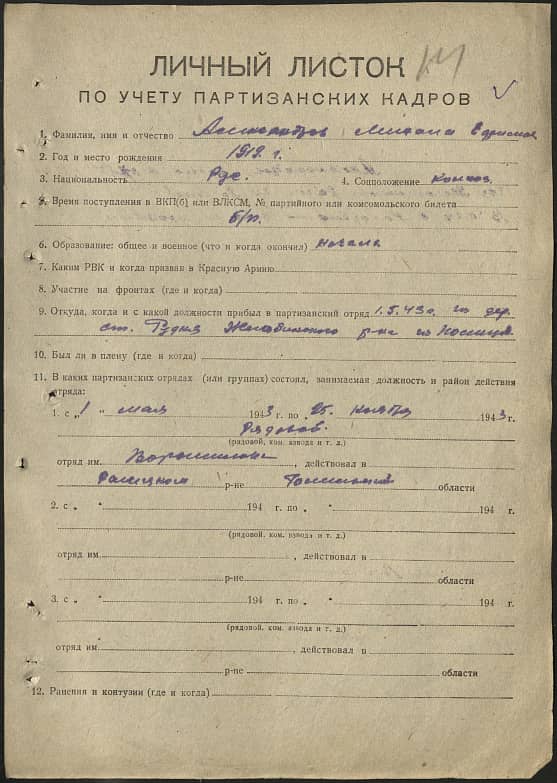 ЛИЧНЫЙ ЛИСТОК
ПО УЧЕТУ ПАРТИЗАНСКИХ КАДРОВ
1. Фамилия, имя и отчество
2. Год и место рождения 1912 г.
3. Национальность Рус. 4. Соцположение
5. Время поступления в ВКП(б) или ВЛКСМ, № партийного или комсомольского билета
б/п.
6. Образование: общее и военное (что и когда окончил)
7. Каким РВК и когда призван в Красную Армию
8. Участие на фронтах (где и когда)
9. Откуда, когда и с какой должности прибыл в партизанский отряд 1.5.43 г. из дер.
ст. Рудня Жлобинского р-на из
10. Был ли в плену (где и когда)
11. В каких партизанских отрядах (или группах) состоял, занимаемая должность и район действия
отряда:
1. с „1 “ мая 1943 г. по 25. ноября 1943 г.
Рядовой.
(рядовой, ком. взвода и т. д.)
отряд им. Ворошилова, действовал в
р-не Гомельской области
2. с „ “ 194 г. по „ “ 194 г.
(рядовой, ком. взвода и т. д.)
отряд им. , действовал в
р-не области
3. с „ “ 194 г. по „ “ 194 г.
(рядовой, ком. взвода и т. д.)
отряд им. , действовал в
р-не области
12. Ранения и контузии (где и когда)